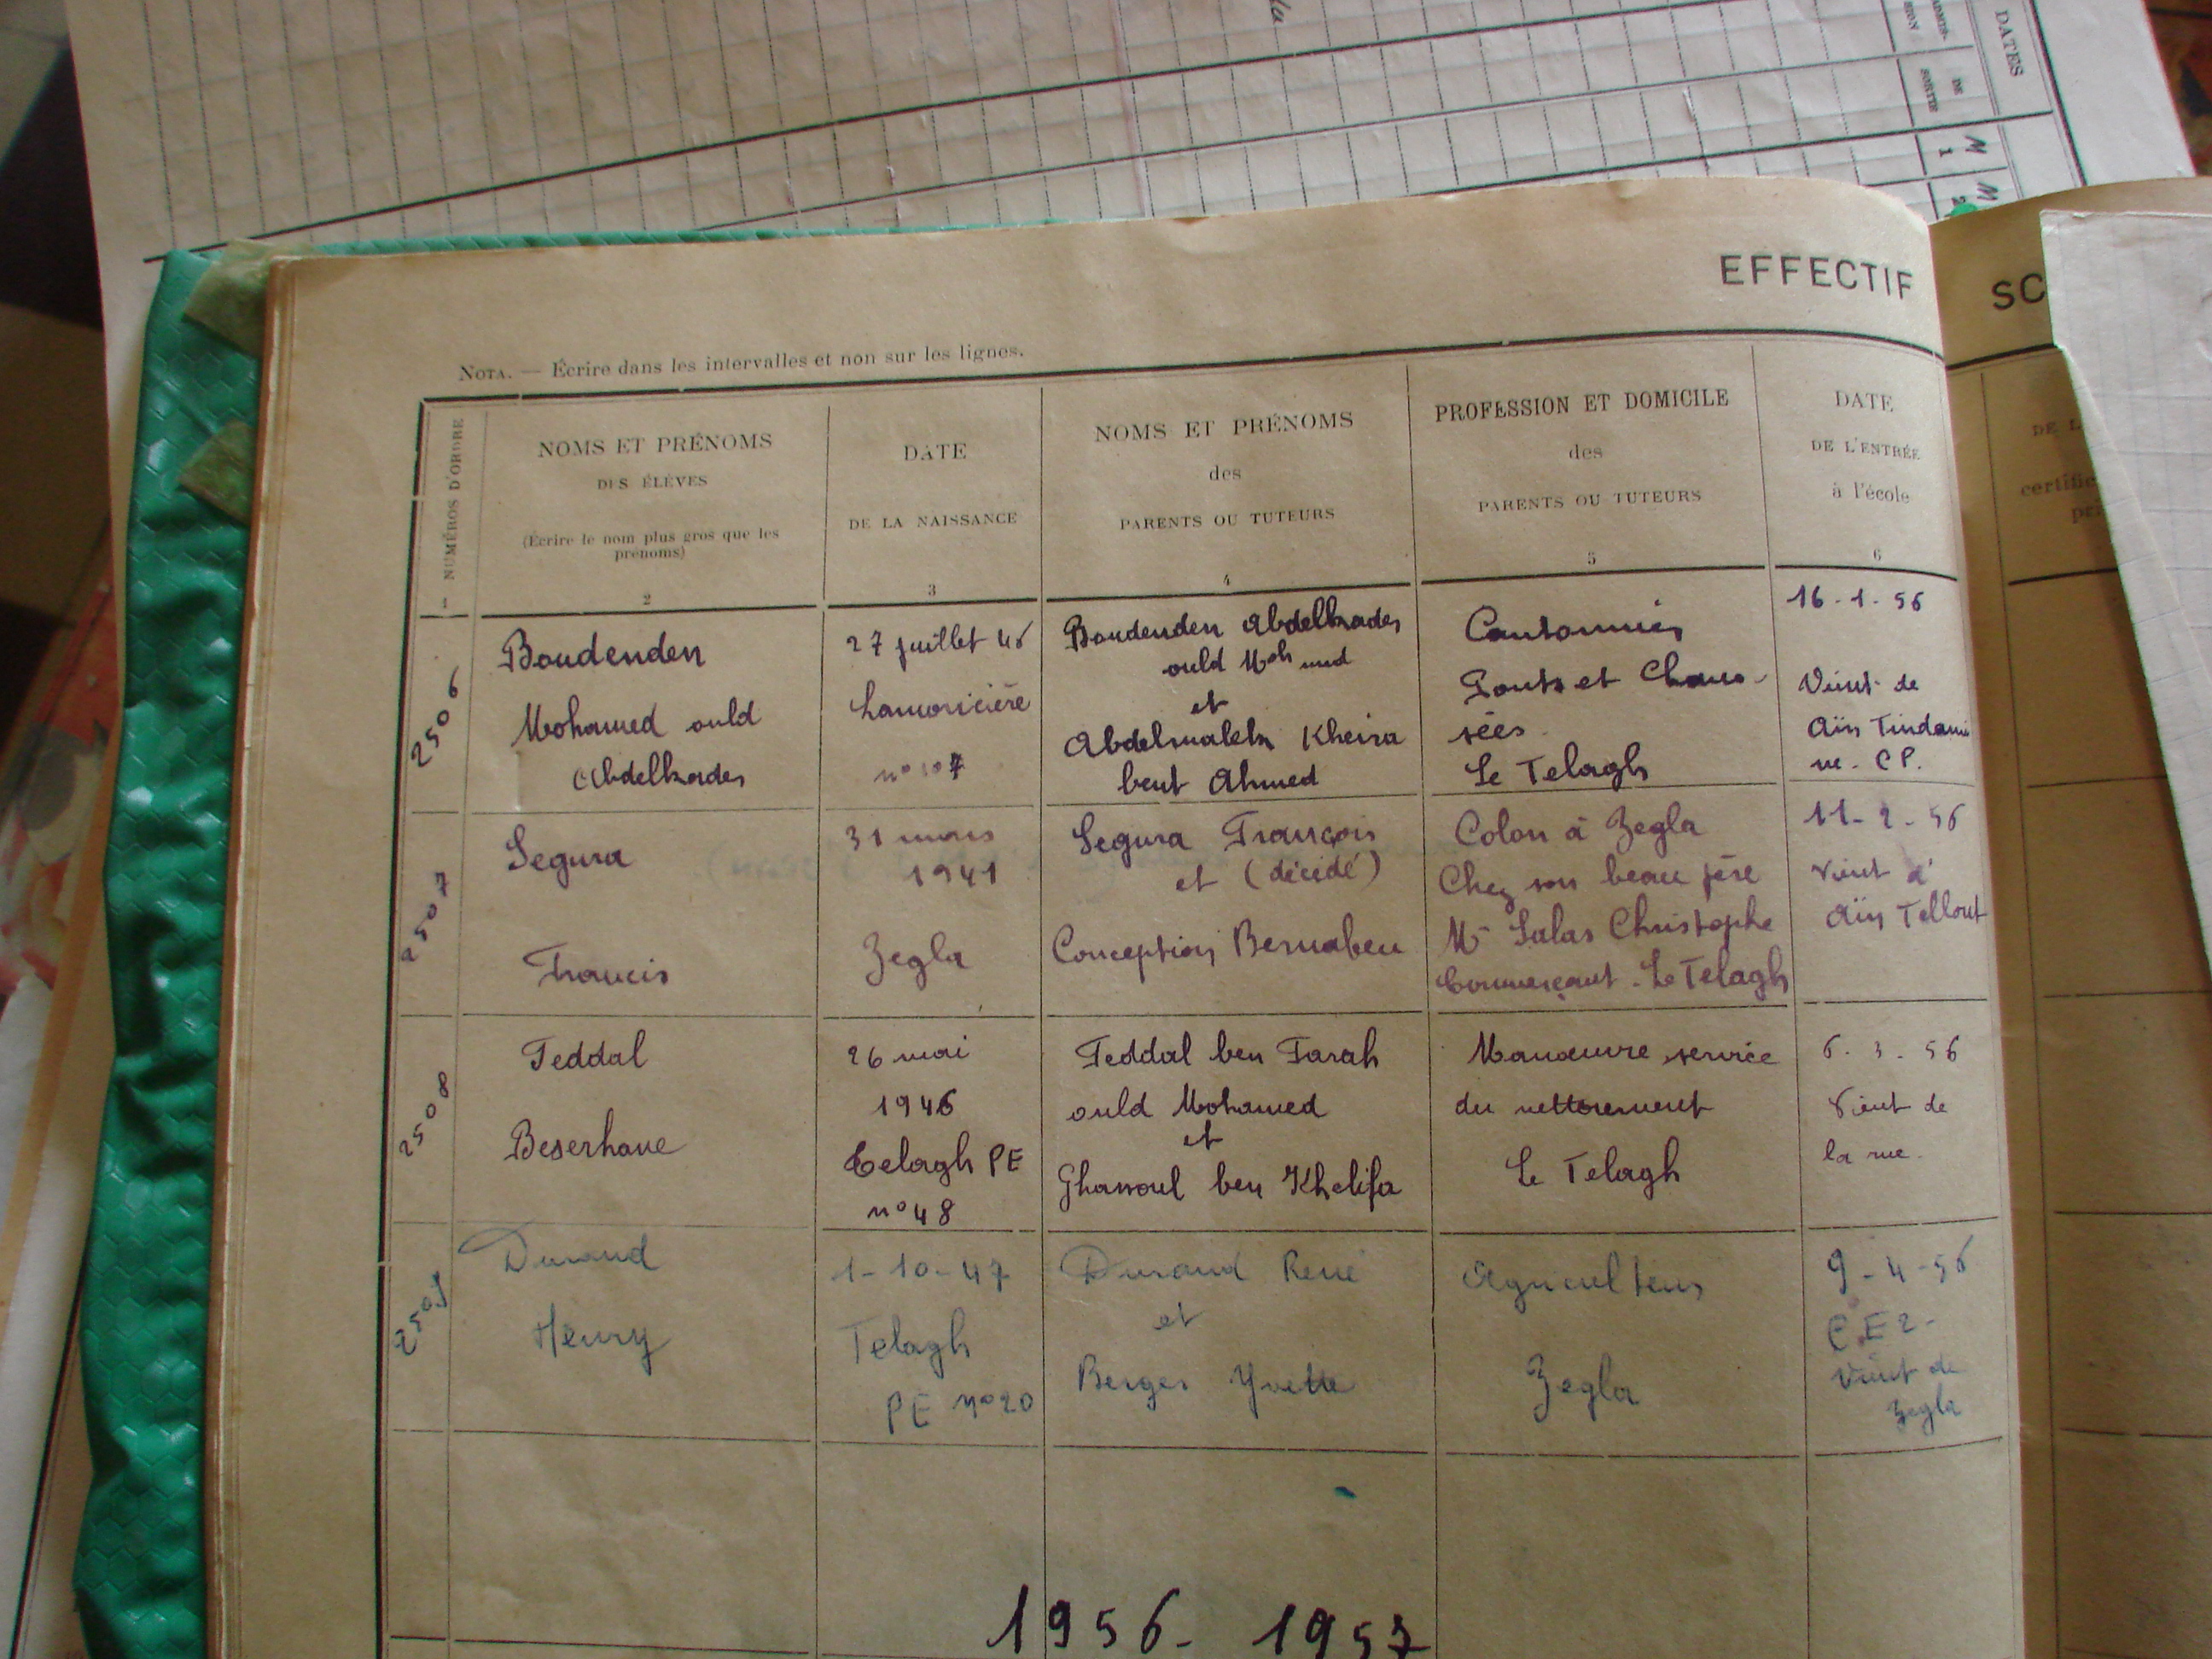 DATES
ADMIS-
SION
DE
SORTIE
M
1
M
2
la
EFFECTIF
SC
NOTA. — Écrire dans les intervalles et non sur les lignes.
NUMÉROS D'ORDRE
1
NOMS ET PRÉNOMS
DES ÉLÈVES
(Écrire le nom plus gros que les
prénoms)
2
DATE
DE LA NAISSANCE
3
NOMS ET PRÉNOMS
des
PARENTS OU TUTEURS
4
PROFESSION ET DOMICILE
des
PARENTS OU TUTEURS
5
DATE
DE L'ENTRÉE
à l'école
6
DE L
certific
2506
Boudenden
Mohamed ould
Abdelkader
27 juillet 46
Lamoricière
n° 107
Boudenden Abdelkader
ould Moh med
et
Abdelmalek Kheira
bent Ahmed
Cantonnier
Ponts et Chaus-
sées
Le Telagh
16-1-56
Vient de
Aïn Tindami
ne. CP.
2507
Segura
Francis
31 mars
1941
Zegla
Segura François
et (décidé)
Conception Bernabeu
Colon à Zegla
Chez son beau père
Mr Salas Christophe
Commerçant - Le Telagh
11-2-56
Vient d'
Aïn Tellout
2508
Feddal
Beserhane
26 mai
1946
Telagh PE
n° 48
Feddal ben Farah
ould Mohamed
et
Ghassoul ben Khelifa
Manœuvre service
du nettoiement
Le Telagh
6-3-56
Vient de
la rue.
2509
Durand
Henry
1-10-47
Telagh
PE n° 20
Durand René
et
Berger Yvette
Agriculteur
Zegla
9-4-56
CE2-
Vient de
Zegla
1956- 1957